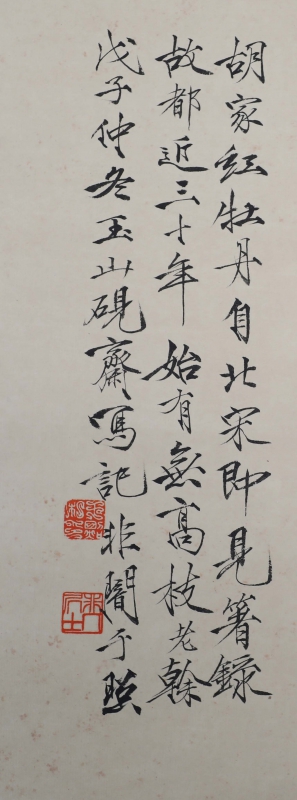 胡家紅牡丹自北宋即見箸錄
故都近三十年始有無高枝老幹
戊子仲冬玉山硯齋寫記非闇于照